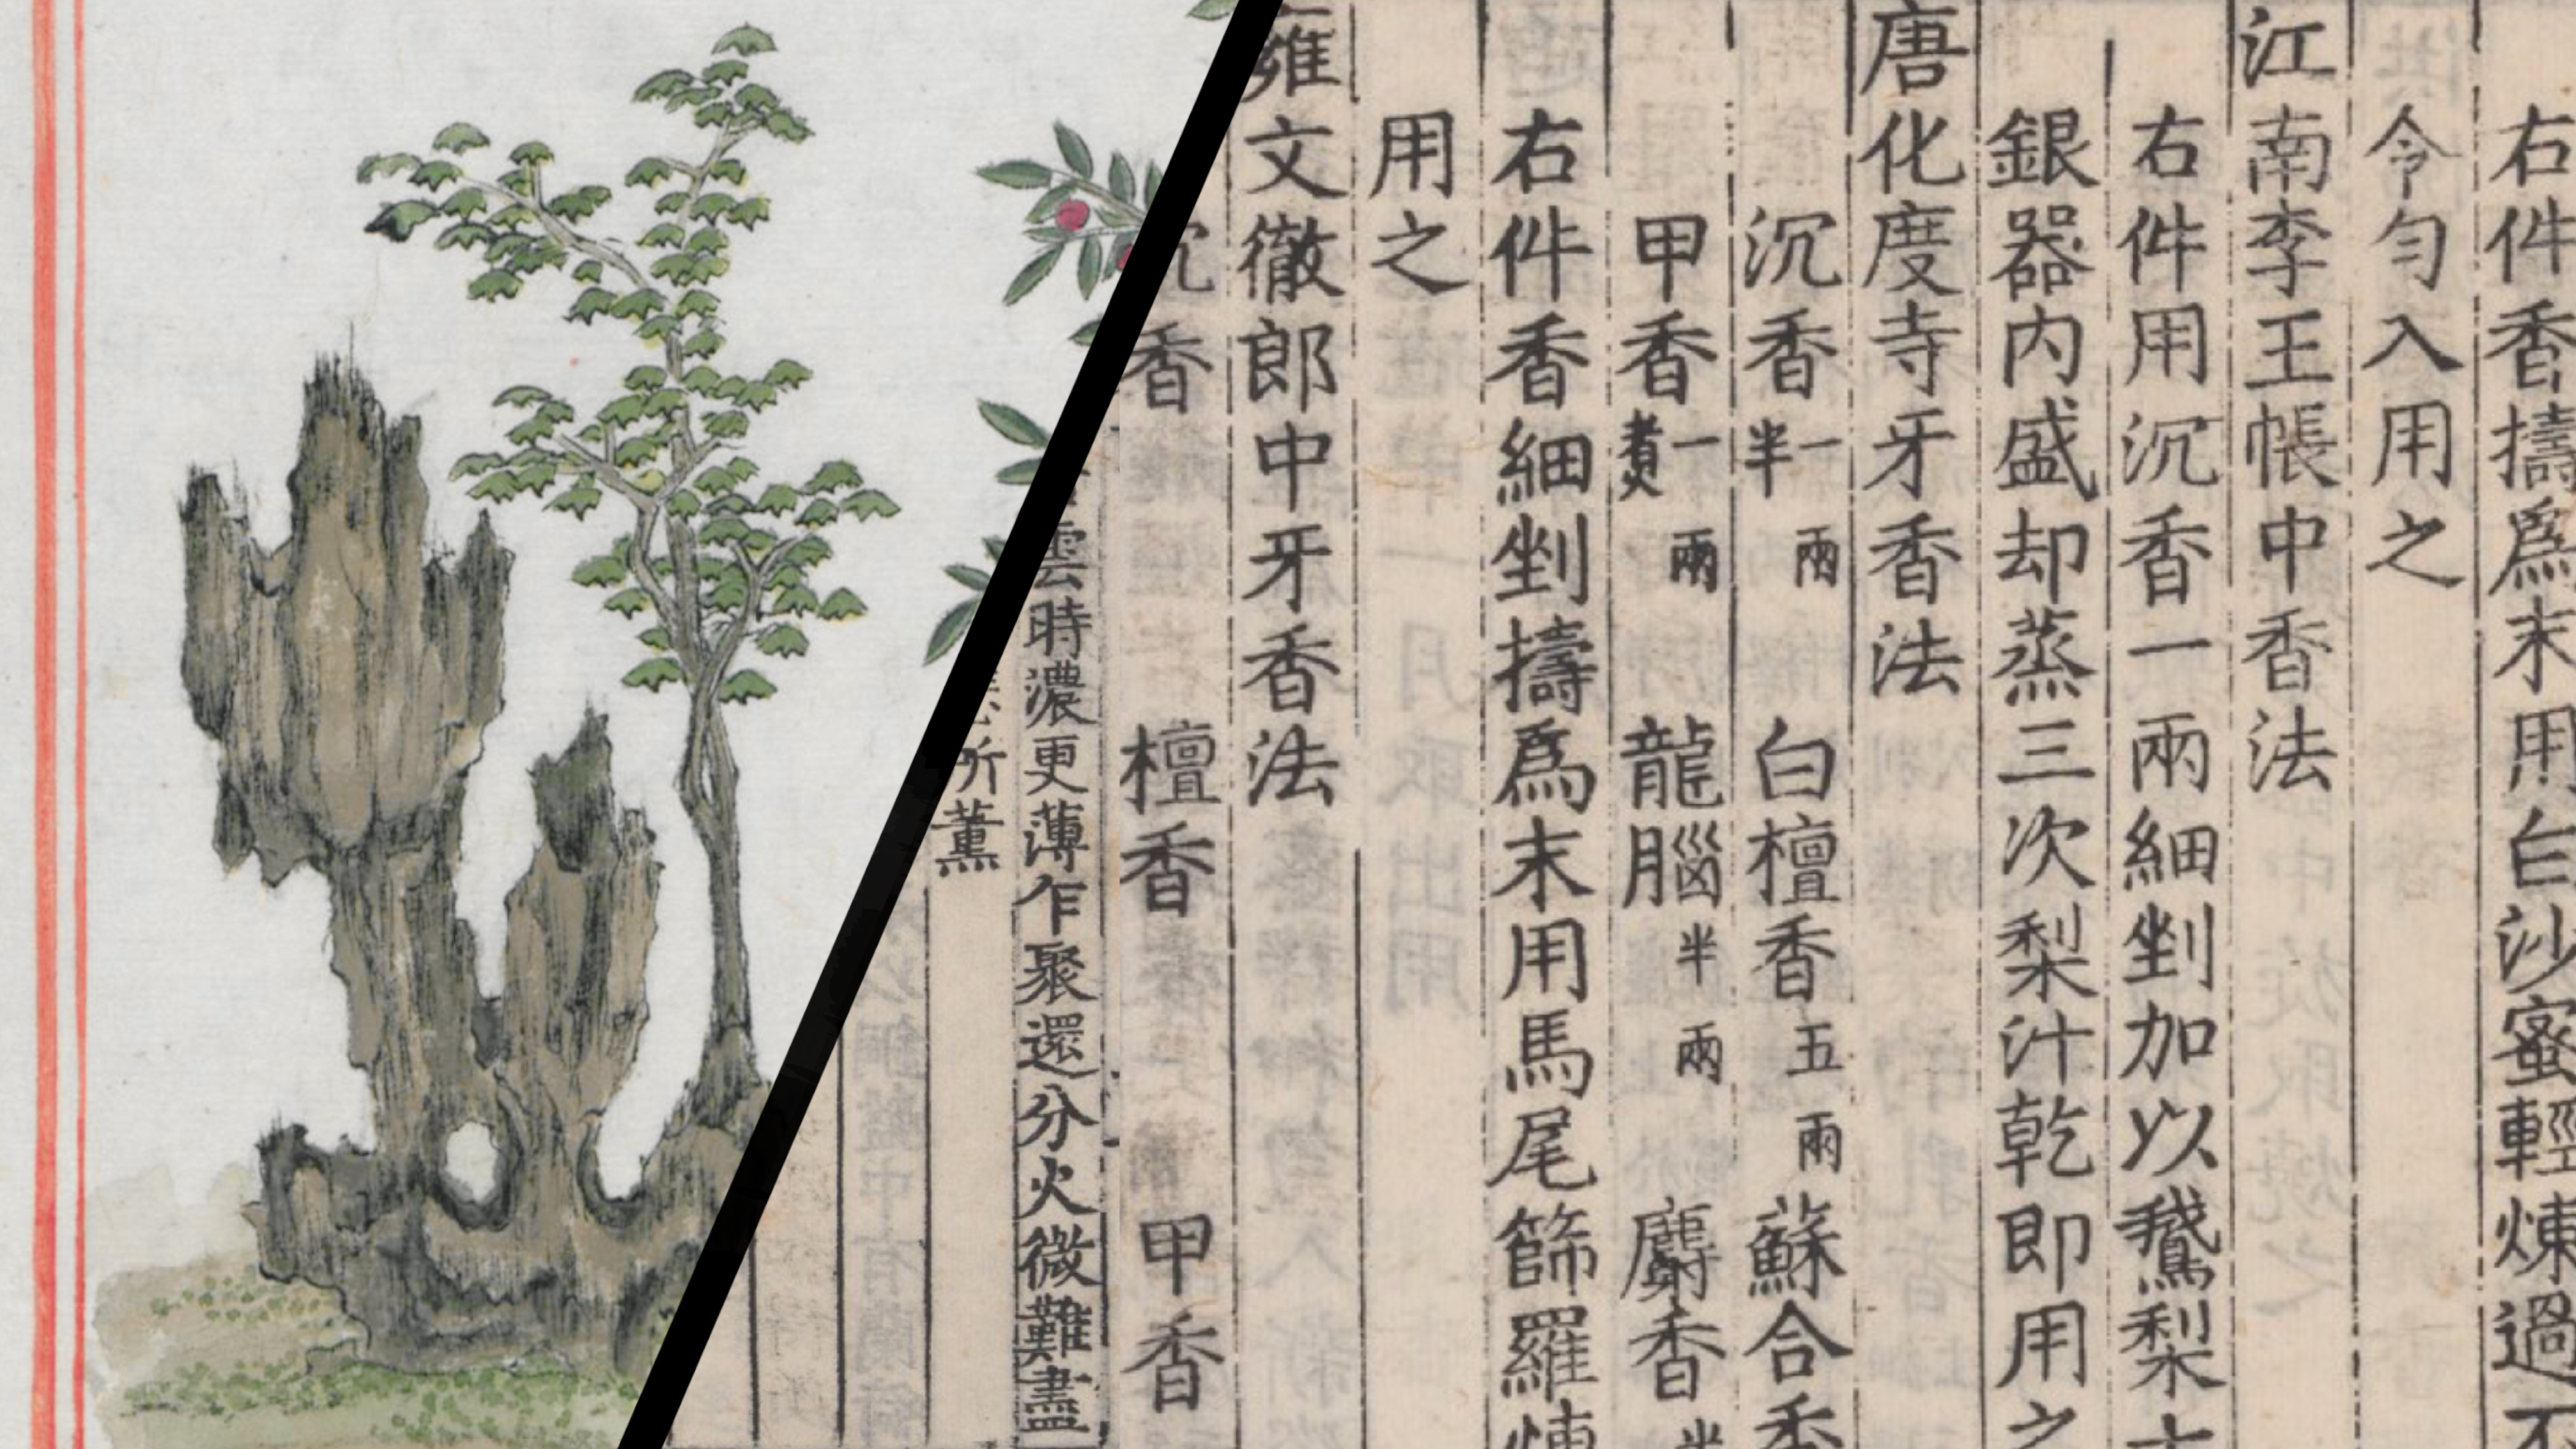 右件香擣爲末用白沙蜜輕煉過不
令勻入用之
江南李王帳中香法
右件用沉香一兩細剉加以鵝梨十
銀器内盛却蒸三次梨汁乾即用之
唐化度寺牙香法
沉香一兩半 白檀香五兩 蘇合香
甲香一兩煑 龍腦半兩 麝香半
右件香細剉擣爲末用馬尾篩羅煉
用之
雍文徹郎中牙香法
沉香 檀香 甲香
雲時濃更薄乍聚還分火微難盡
所薰